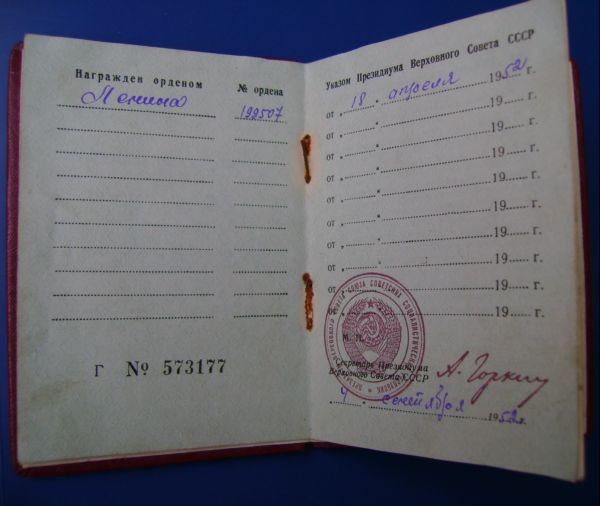 Награжден орденом № ордена
Ленина 199507
Г № 573177
Указом Президиума Верховного Совета СССР
от „ 18 „ апреля 1952 г.
от „ „ 19 г.
от „ „ 19 г.
от „ „ 19 г.
от „ „ 19 г.
от „ „ 19 г.
от „ „ 19 г.
от „ „ 19 г.
от „ „ 19 г.
от „ „ 19 г.
М. П.
Секретарь Президиума
Верховного Совета СССР
А. Горкин
4 сентября 1952 г.